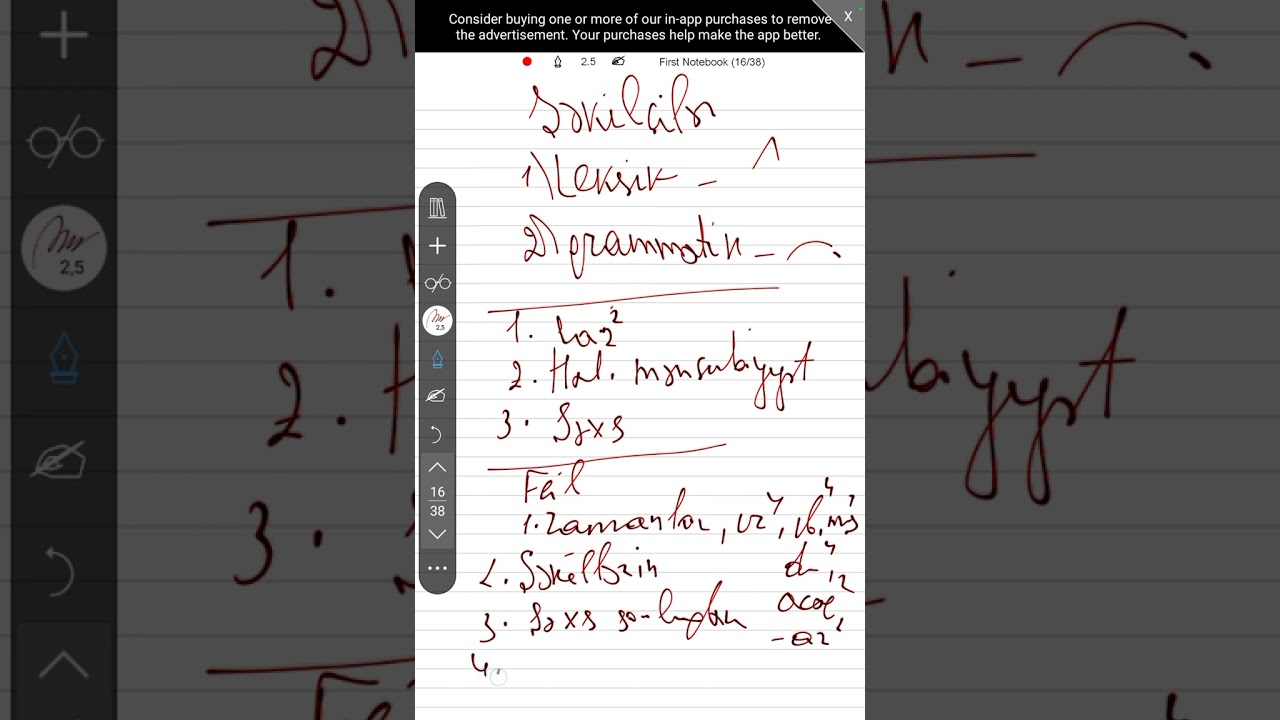 Consider buying one or more of our in-app purchases to remove
the advertisement. Your purchases help make the app better.
X
2.5 First Notebook (16/38)
Şəkilçilər
1) Leksik -
2) qrammatik -
1. lar²
2. Hal. mənsubiyyət
3. Şəxs
2,5
16
38
Feil
1. Zamanlar, ır⁴, ıb⁴, mış⁴
dı⁴
2.
3. Şəxs sonluqları
acaq²
-ar²
4.